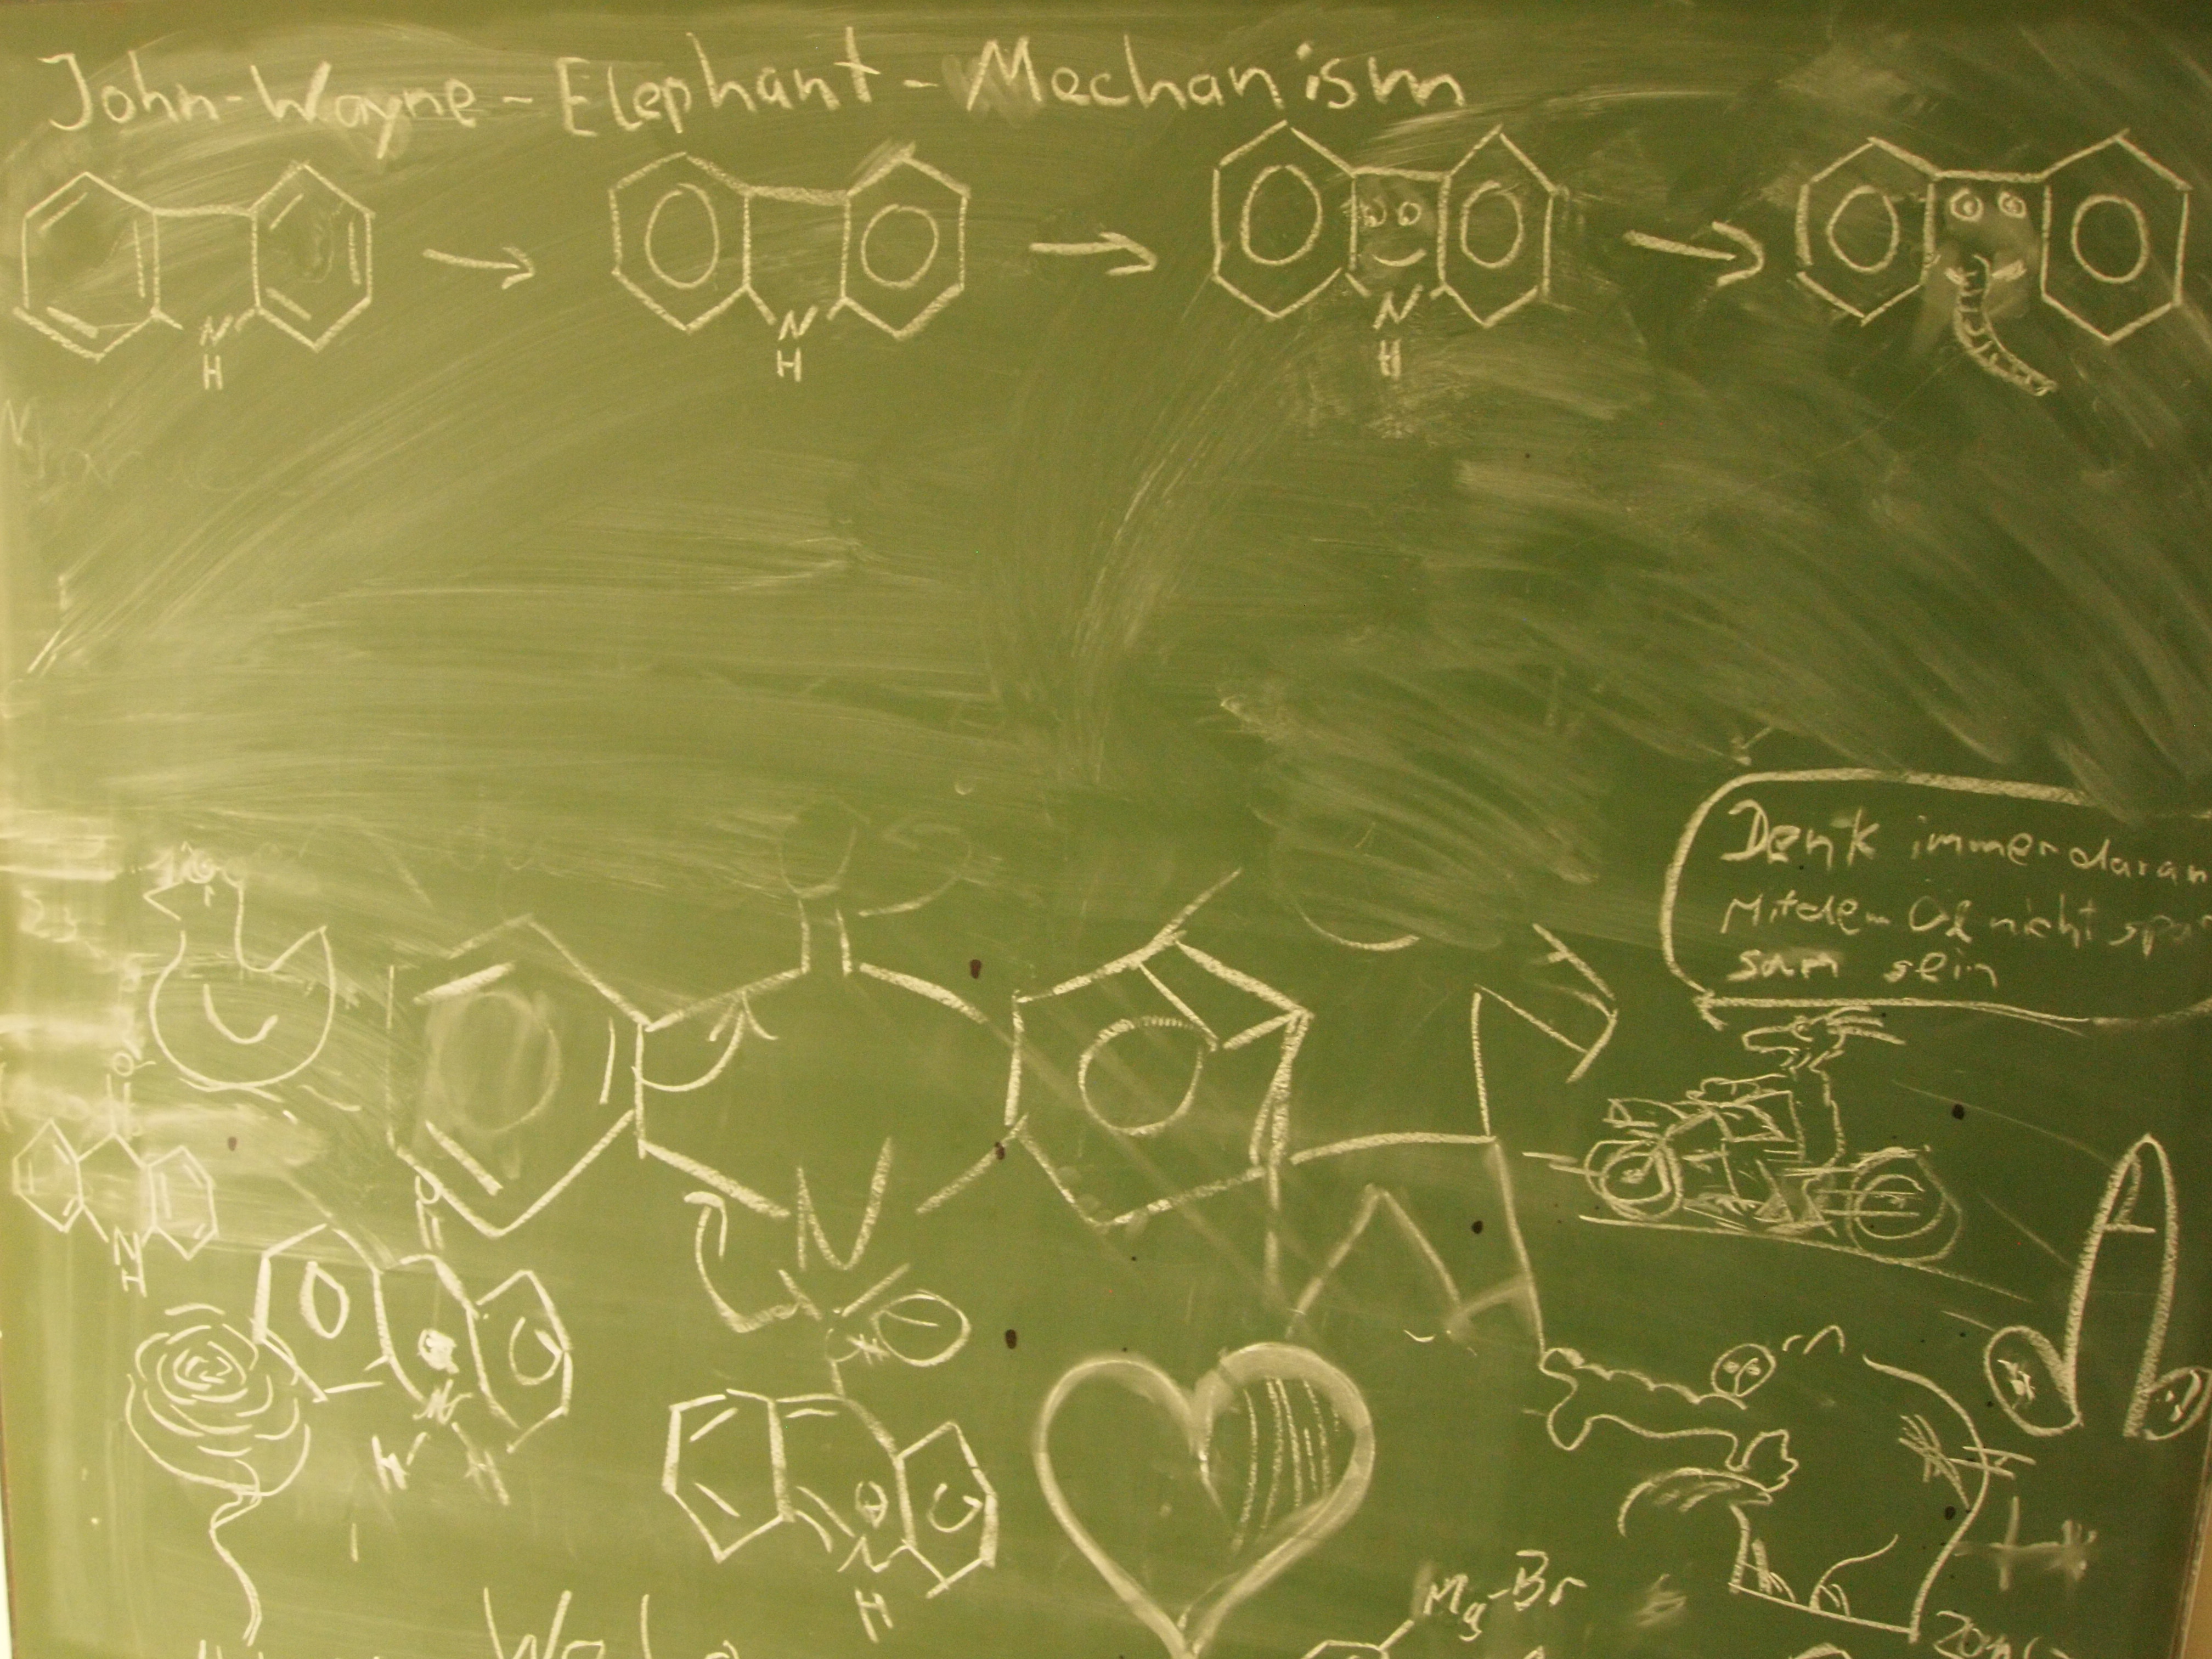 John-Wayne-Elephant-Mechanism
N
H
N
H
N
H
Denk immer daran
Mit dem Öl nicht spar
sam sein
N
N
H
N
H
H
N
H
Mg-Br